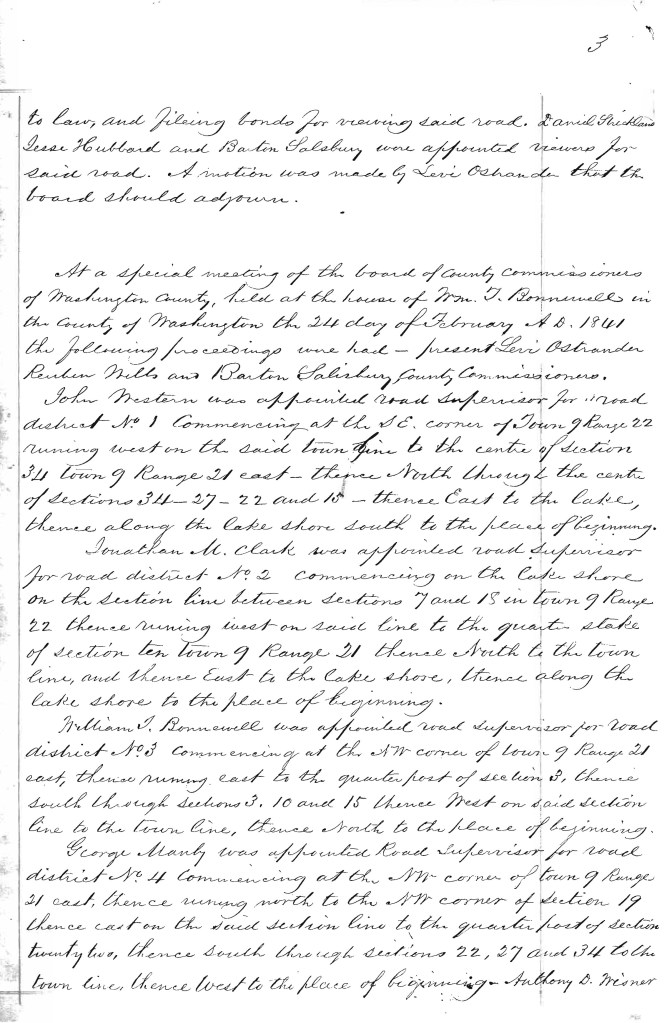 3
to law, and fileing bonds for viewing said road. Daniel Strickland
Jesse Hubbard and Barton Salsbury were appointed viewers for
said road. A motion was made by Levi Ostrander that the
board should adjourn.
At a special meeting of the board of County Commissioners
of Washington County, held at the house of Wm. T. Bonnewell in
the County of Washington the 24 day of February A D. 1841
the following proceedings were had – present Levi Ostrander
Reuben Wells and Barton Salisbury County Commissioners.
John Western was appointed road supervisor for "road
district No. 1 Commencing at the S E. corner of Town 9 Range 22
runing west on the said town line to the centre of section
34 town 9 Range 21 east – thence North through the centre
of sections 34 – 27 – 22 and 15 – thence East to the lake,
thence along the lake shore south to the place of beginning.
Jonathan M. Clark was appointed road supervisor
for road district No. 2 commencing on the lake shore
on the section line between sections 7 and 18 in town 9 Range
22 thence runing west on said line to the quarter stake
of section ten town 9 Range 21 thence North to the town
line, and thence East to the lake shore, thence along the
lake shore to the place of beginning.
William T. Bonnewell was appointed road supervisor for road
district No. 3 Commencing at the NW corner of town 9 Range 21
east, thence runing east to the quarter post of section 3, thence
south through sections 3. 10 and 15 thence West on said section
line to the town line, thence North to the place of beginning.
George Manly was appointed Road Supervisor for road
district No. 4 Commencing at the NW corner of town 9 Range
21 east, thence runing north to the NW corner of section 19
thence east on the said section line to the quarter post of section
twenty two, thence south through sections 22, 27 and 34 to the
town line, thence West to the place of beginning – Anthony D. Wisner